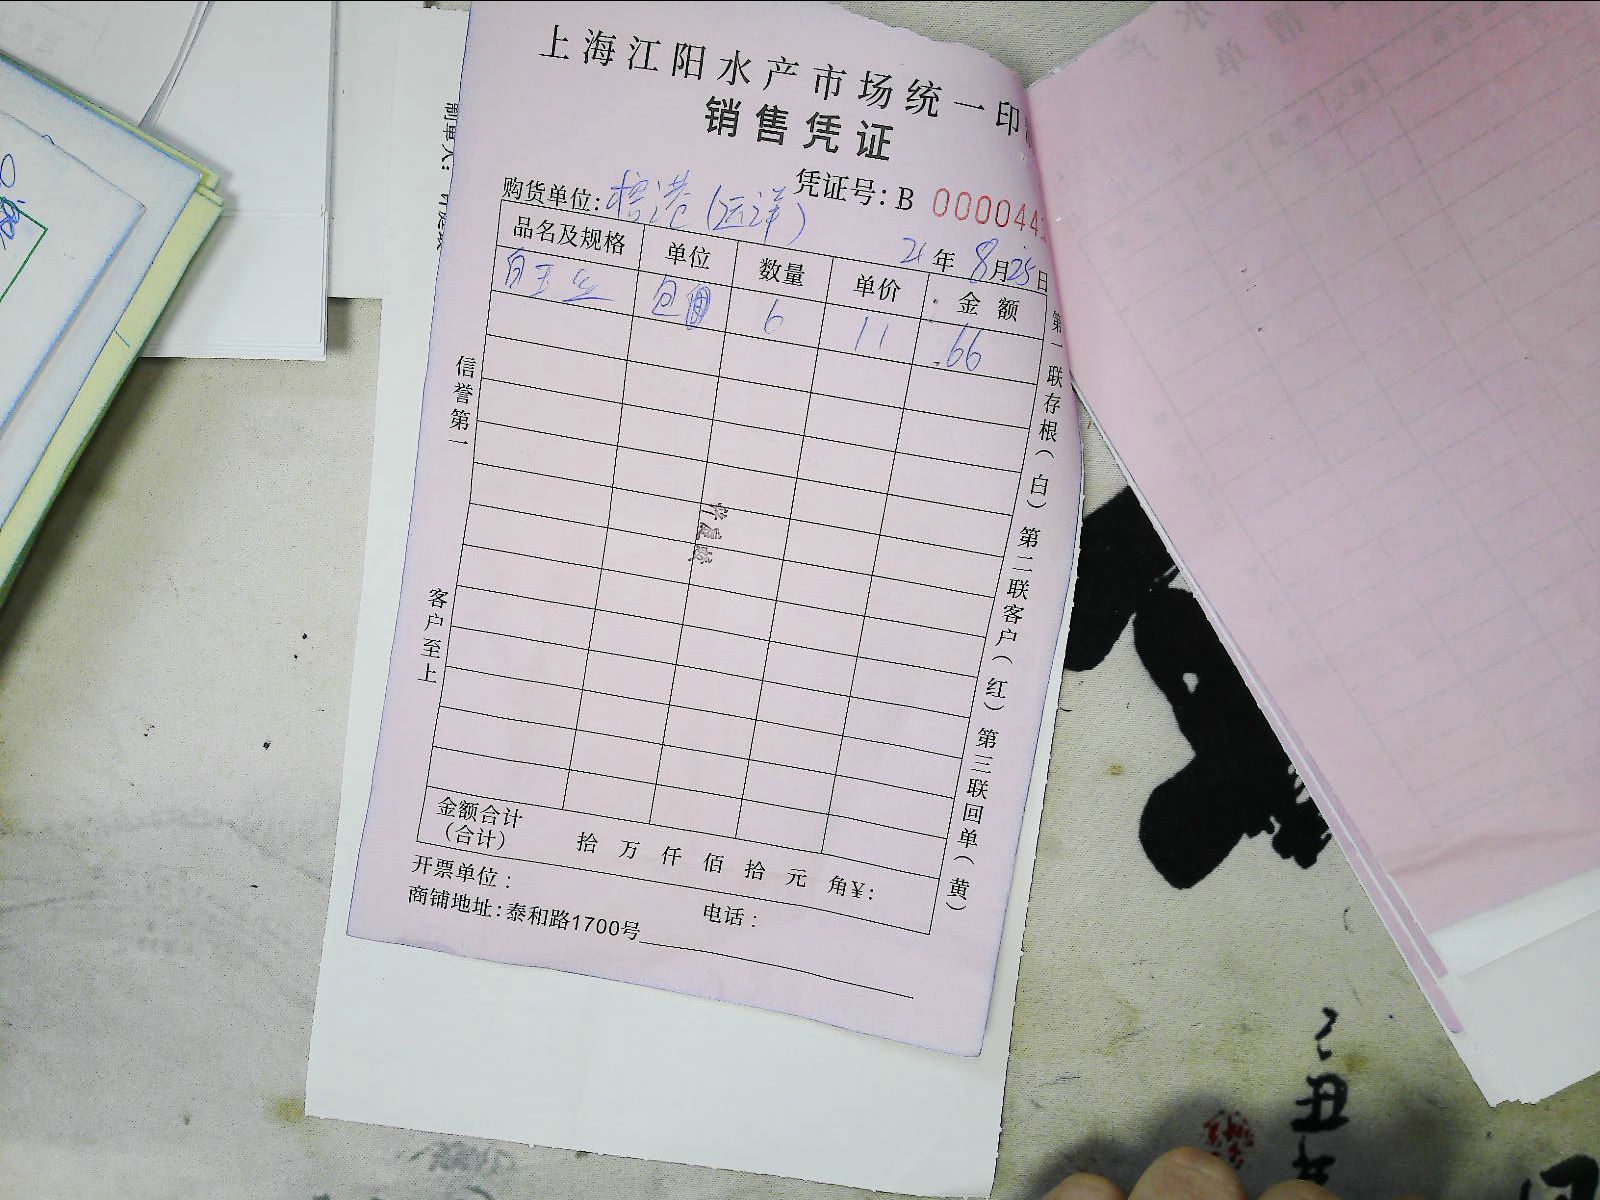 上海江阳水产市场统一印
销售凭证
凭证号: B 000044
购货单位: 榕港(远洋)
21年8月25日
品名及规格 单位 数量 单价 金额
白玉丝 包 6 11 66
信誉第一
客户至上
第一联存根(白) 第二联客户(红) 第三联回单(黄)
金额合计
(合计) 拾 万 仟 佰 拾 元 角¥:
开票单位: 电话:
商铺地址:泰和路1700号
制单人:
丑